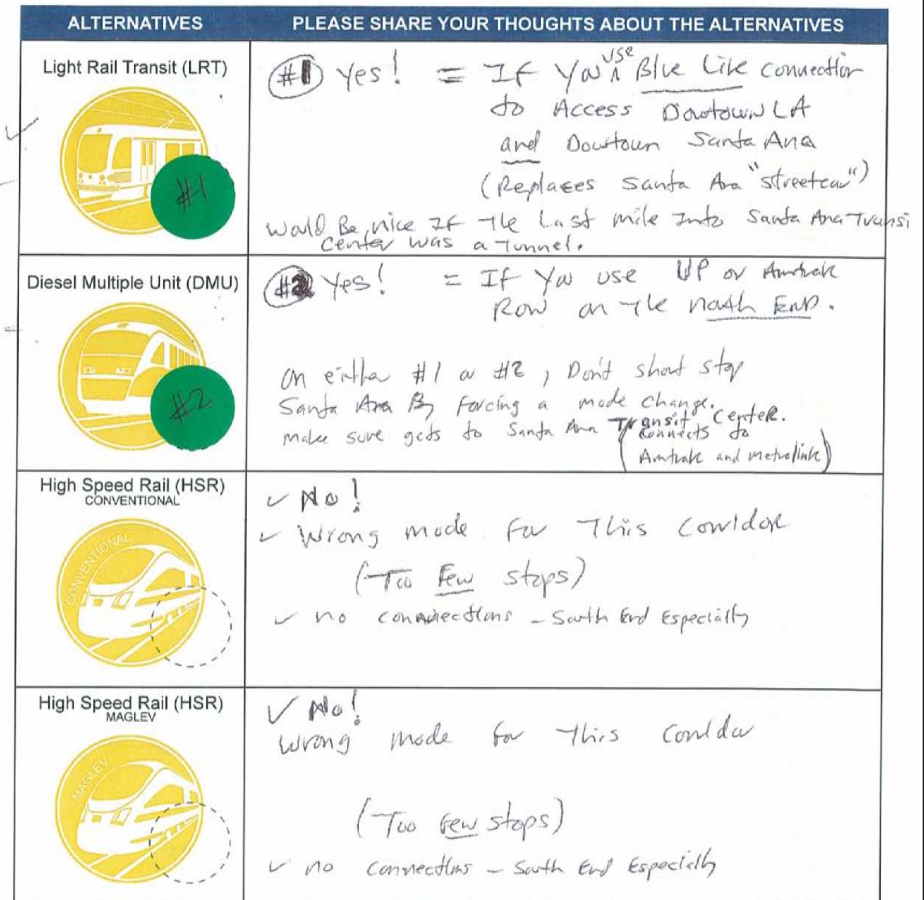 ALTERNATIVES
PLEASE SHARE YOUR THOUGHTS ABOUT THE ALTERNATIVES
Light Rail Transit (LRT)
#1
#1 Yes! = If You use Blue Line connection
to Access Dowtown LA
and Dowtown Santa Ana
(Replaces Santa Ana "streetcar")
would Be nice If The Last mile Into Santa Ana Transi
Center was a Tunnel.
Diesel Multiple Unit (DMU)
#2
#2 Yes! = If You use UP or Amtrak
ROW on The North End.
On either #1 or #2, Don't short stop
Santa Ana By Forcing a mode change.
make sure gets to Santa Ana Transit Center.
(connects to
Amtrak and metrolink)
High Speed Rail (HSR)
CONVENTIONAL
CONVENTIONAL
✓ No!
✓ Wrong mode for This Corridor
(Too Few stops)
✓ no connections - South End Especially
High Speed Rail (HSR)
MAGLEV
MAGLEV
✓ No!
Wrong mode for This Corridor
(Too Few stops)
✓ no connections - South End Especially